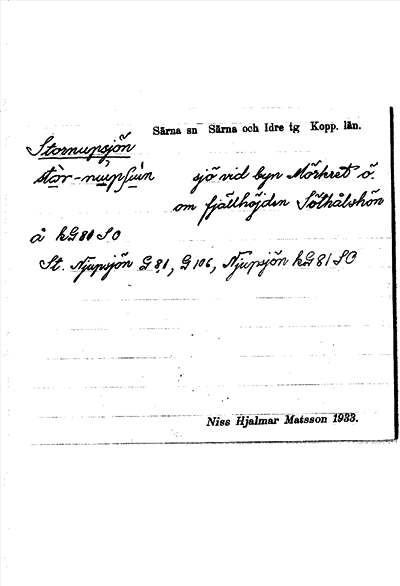 Särna sn Särna och Idre tg Kopp. län.
Stornupsjön
stòr-nupʃún sjö vid byn Mörkret ö.
om fjällhöjden Sölhåhön
å kG 81 SO
St. Njupsjön G 81, G 106, Njupsjön kG 81 SO
Niss Hjalmar Matsson 1933.